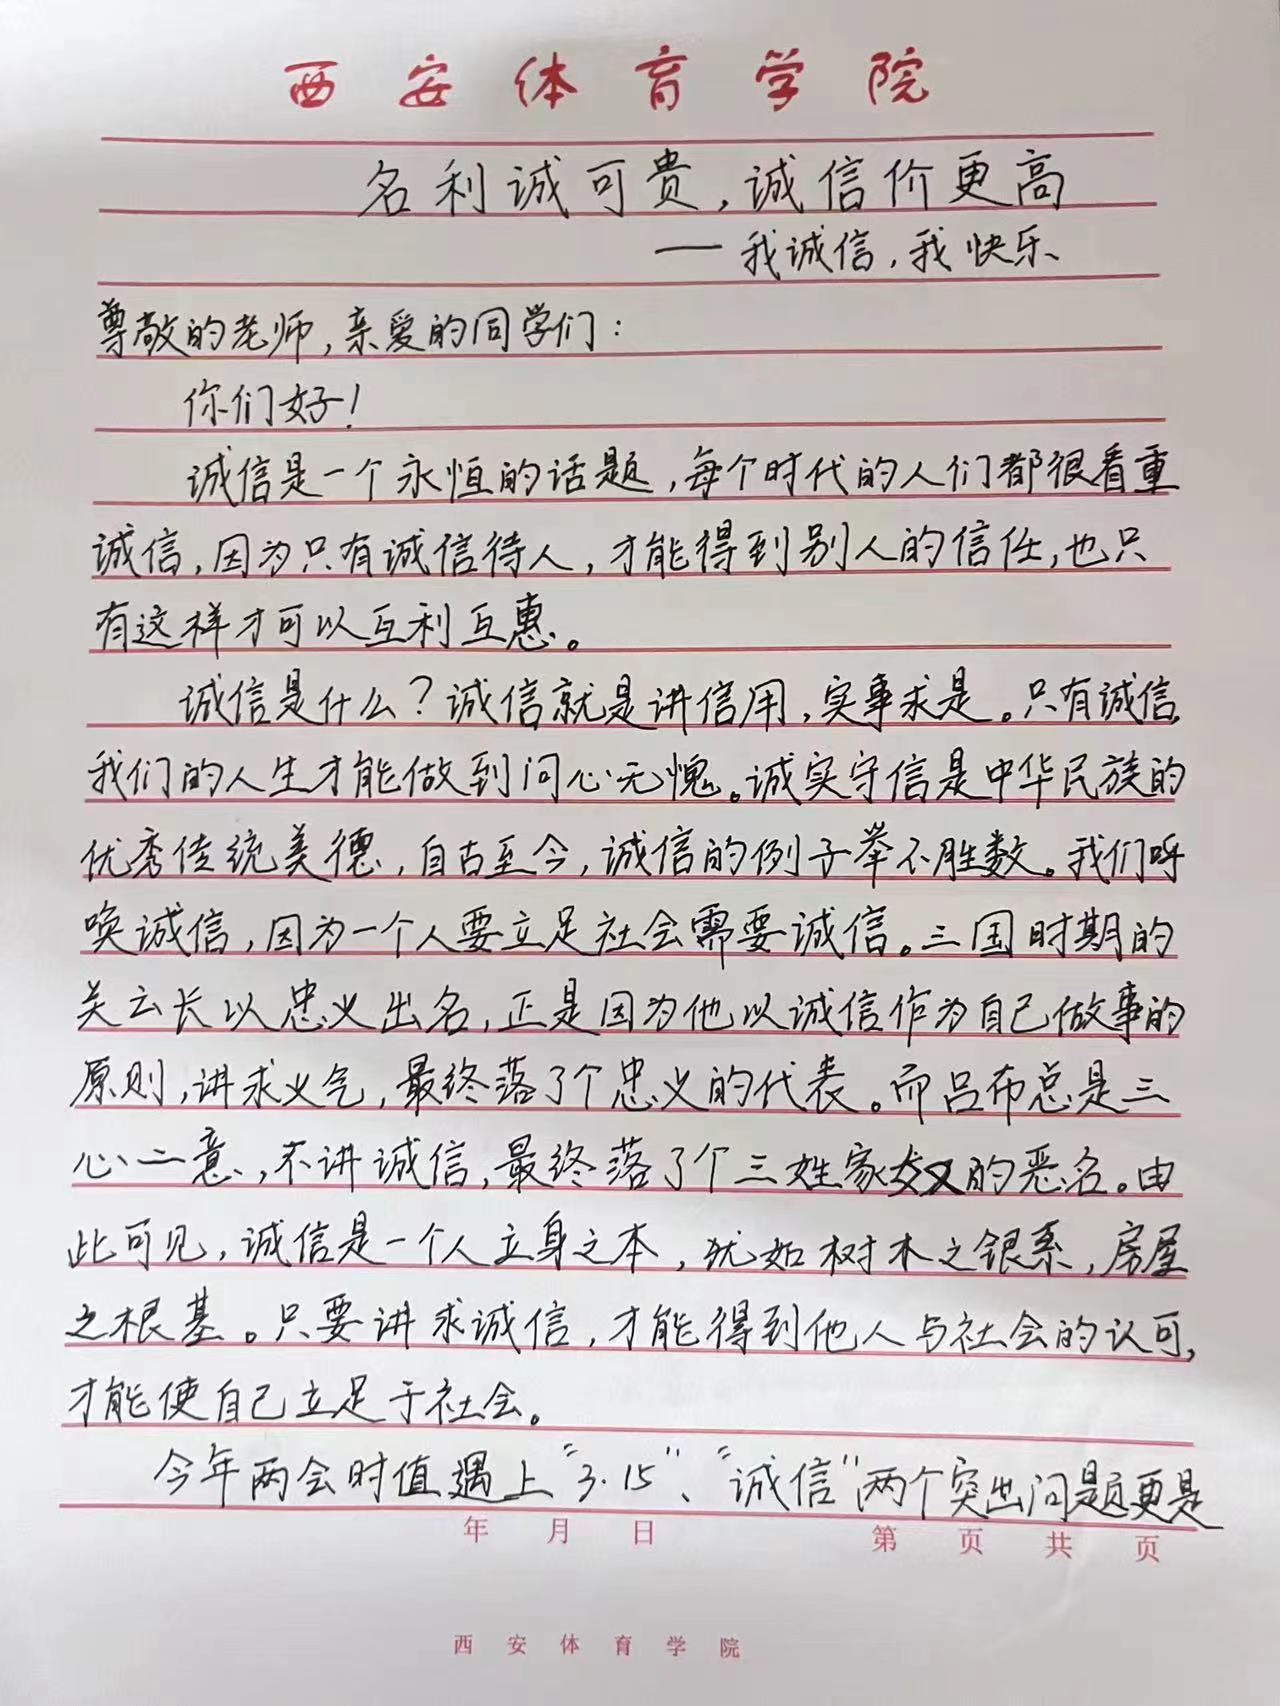 西安体育学院
名利诚可贵，诚信价更高
—我诚信，我快乐
尊敬的老师，亲爱的同学们：
你们好！
诚信是一个永恒的话题，每个时代的人们都很看重
诚信，因为只有诚信待人，才能得到别人的信任，也只
有这样才可以互利互惠。
诚信是什么？诚信就是讲信用，实事求是。只有诚信，
我们的人生才能做到问心无愧。诚实守信是中华民族的
优秀传统美德，自古至今，诚信的例子举不胜数。我们呼
唤诚信，因为一个人要立足社会需要诚信。三国时期的
关云长以忠义出名，正是因为他以诚信作为自己做事的
原则，讲求义气，最终落了个忠义的代表。而吕布总是三
心二意，不讲诚信，最终落了个三姓家奴的恶名。由
此可见，诚信是一个人立身之本，犹如树木之银系，房屋
之根基。只要讲求诚信，才能得到他人与社会的认可，
才能使自己立足于社会。
今年两会时值遇上“3.15”、“诚信”两个突出问题更是
年 月 日 第 页 共 页
西安体育学院